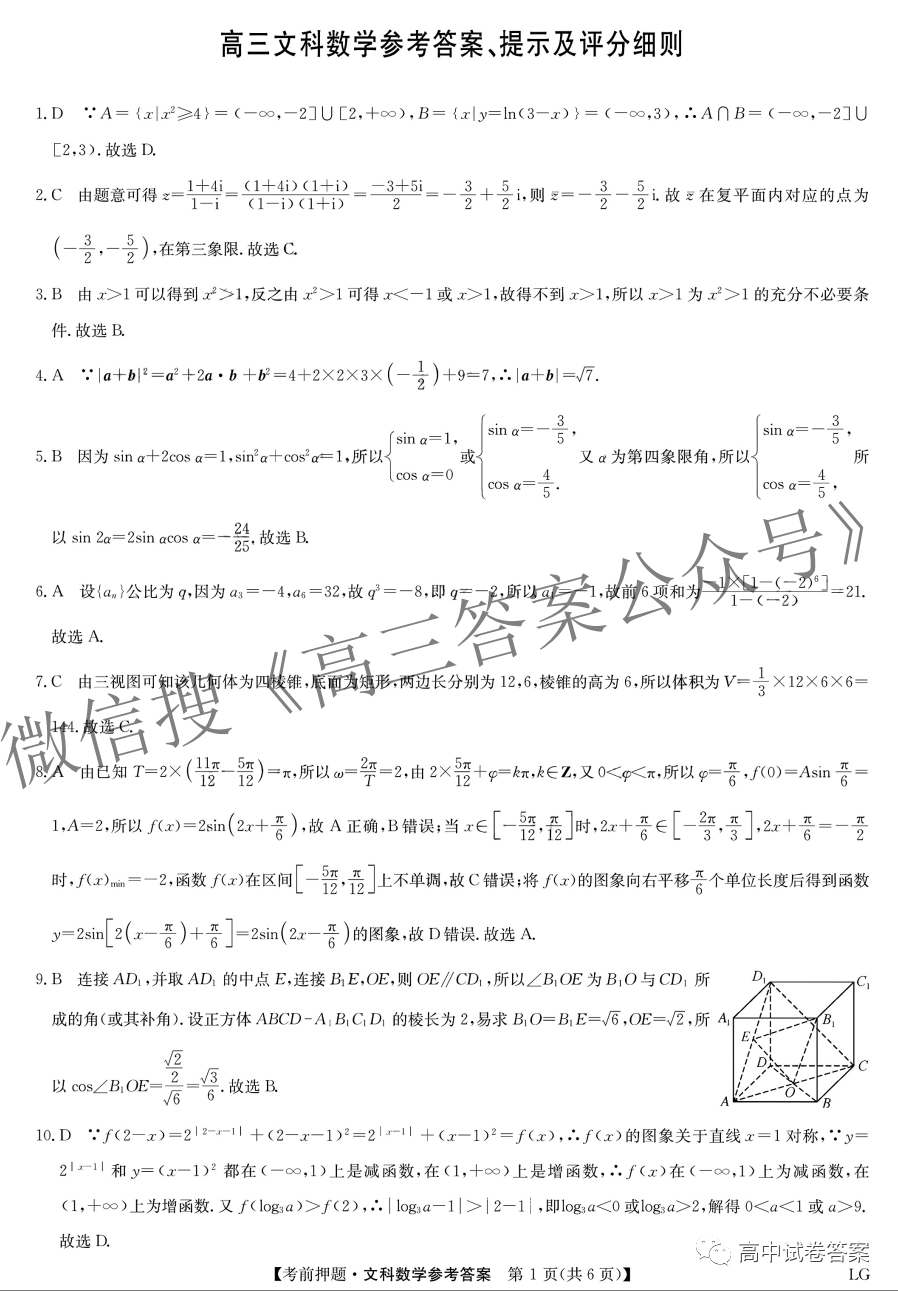 高三文科数学参考答案、提示及评分细则
1. D ∵A={x|x²≥4}=(-∞,-2]∪[2,+∞),B={x|y=ln(3-x)}=(-∞,3),∴A∩B=(-∞,-2]∪
[2,3).故选D.
2. C 由题意可得 z=\frac{1+4i}{1-i}=\frac{(1+4i)(1+i)}{(1-i)(1+i)}=\frac{-3+5i}{2}=-\frac{3}{2}+\frac{5}{2}i,则 \bar{z}=-\frac{3}{2}-\frac{5}{2}i.故 \bar{z} 在复平面内对应的点为
(-\frac{3}{2},-\frac{5}{2}),在第三象限.故选C.
3. B 由 x>1 可以得到 x²>1,反之由 x²>1 可得 x<-1 或 x>1,故得不到 x>1,所以 x>1 为 x²>1 的充分不必要条
件.故选B.
4. A ∵|a+b|²=a²+2a·b+b²=4+2×2×3×(-\frac{1}{2})+9=7,∴|a+b|=√7.
5. B 因为 sin α+2cos α=1,sin²α+cos²α=1,所以{sin α=1, cos α=0 或{sin α=-\frac{3}{5}, cos α=\frac{4}{5}. 又 α 为第四象限角,所以{sin α=-\frac{3}{5}, cos α=\frac{4}{5}, 所
以 sin 2α=2sin αcos α=-\frac{24}{25}.故选B.
6. A 设{aₙ}公比为 q,因为 a₃=-4,a₆=32,故 q³=-8,即 q=-2,所以 a₁=-1,故前 6 项和为\frac{-1×[1-(-2)⁶]}{1-(-2)}=21.
故选A.
7. C 由三视图可知该几何体为四棱锥,底面为矩形,两边长分别为 12,6,棱锥的高为 6,所以体积为 V=\frac{1}{3}×12×6×6=
144.故选C.
8. A 由已知 T=2×(\frac{11π}{12}-\frac{5π}{12})=π,所以 ω=\frac{2π}{T}=2,由 2×\frac{5π}{12}+φ=kπ,k∈Z,又 0<φ<π,所以 φ=\frac{π}{6},f(0)=Asin \frac{π}{6}=
1,A=2,所以 f(x)=2sin(2x+\frac{π}{6}),故 A 正确,B 错误;当 x∈[-\frac{5π}{12},\frac{π}{12}]时,2x+\frac{π}{6}∈[-\frac{2π}{3},\frac{π}{3}],2x+\frac{π}{6}=-\frac{π}{2}
时,f(x)ₘᵢₙ=-2,函数 f(x)在区间[-\frac{5π}{12},\frac{π}{12}]上不单调,故 C 错误;将 f(x)的图象向右平移\frac{π}{6}个单位长度后得到函数
y=2sin[2(x-\frac{π}{6})+\frac{π}{6}]=2sin(2x-\frac{π}{6})的图象,故 D 错误.故选A.
9. B 连接 AD₁,并取 AD₁ 的中点 E,连接 B₁E,OE,则 OE∥CD₁,所以∠B₁OE 为 B₁O 与 CD₁ 所
成的角(或其补角).设正方体 ABCD-A₁B₁C₁D₁ 的棱长为 2,易求 B₁O=B₁E=√6,OE=√2,所
以 cos∠B₁OE=\frac{\frac{√2}{2}}{√6}=\frac{√3}{6}.故选B.
D₁ C₁
A₁ B₁
E
D C
O
A B
10. D ∵f(2-x)=2^{|2-x-1|}+(2-x-1)²=2^{|x-1|}+(x-1)²=f(x),∴f(x)的图象关于直线 x=1 对称,∵y=
2^{|x-1|} 和 y=(x-1)² 都在(-∞,1)上是减函数,在(1,+∞)上是增函数,∴f(x)在(-∞,1)上为减函数,在
(1,+∞)上为增函数.又 f(log₃a)>f(2),∴|log₃a-1|>|2-1|,即log₃a<0 或log₃a>2,解得 0<a<1 或 a>9.
故选D.
微信搜《高三答案公众号》
高中试卷答案
【考前押题·文科数学参考答案 第 1 页(共 6 页)】 LG